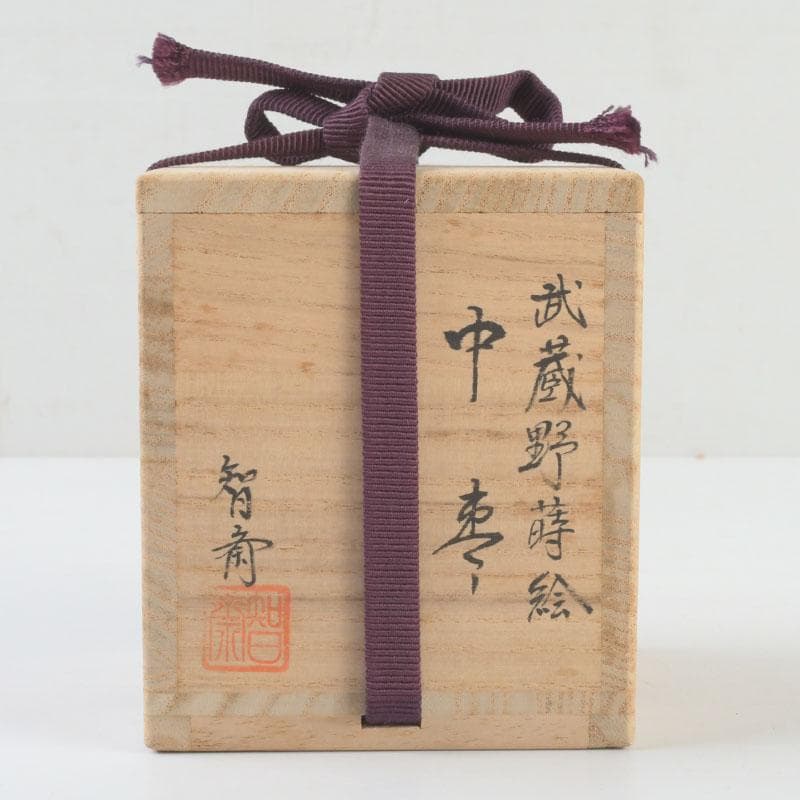 武蔵野蒔絵
中棗
智斎
智斎